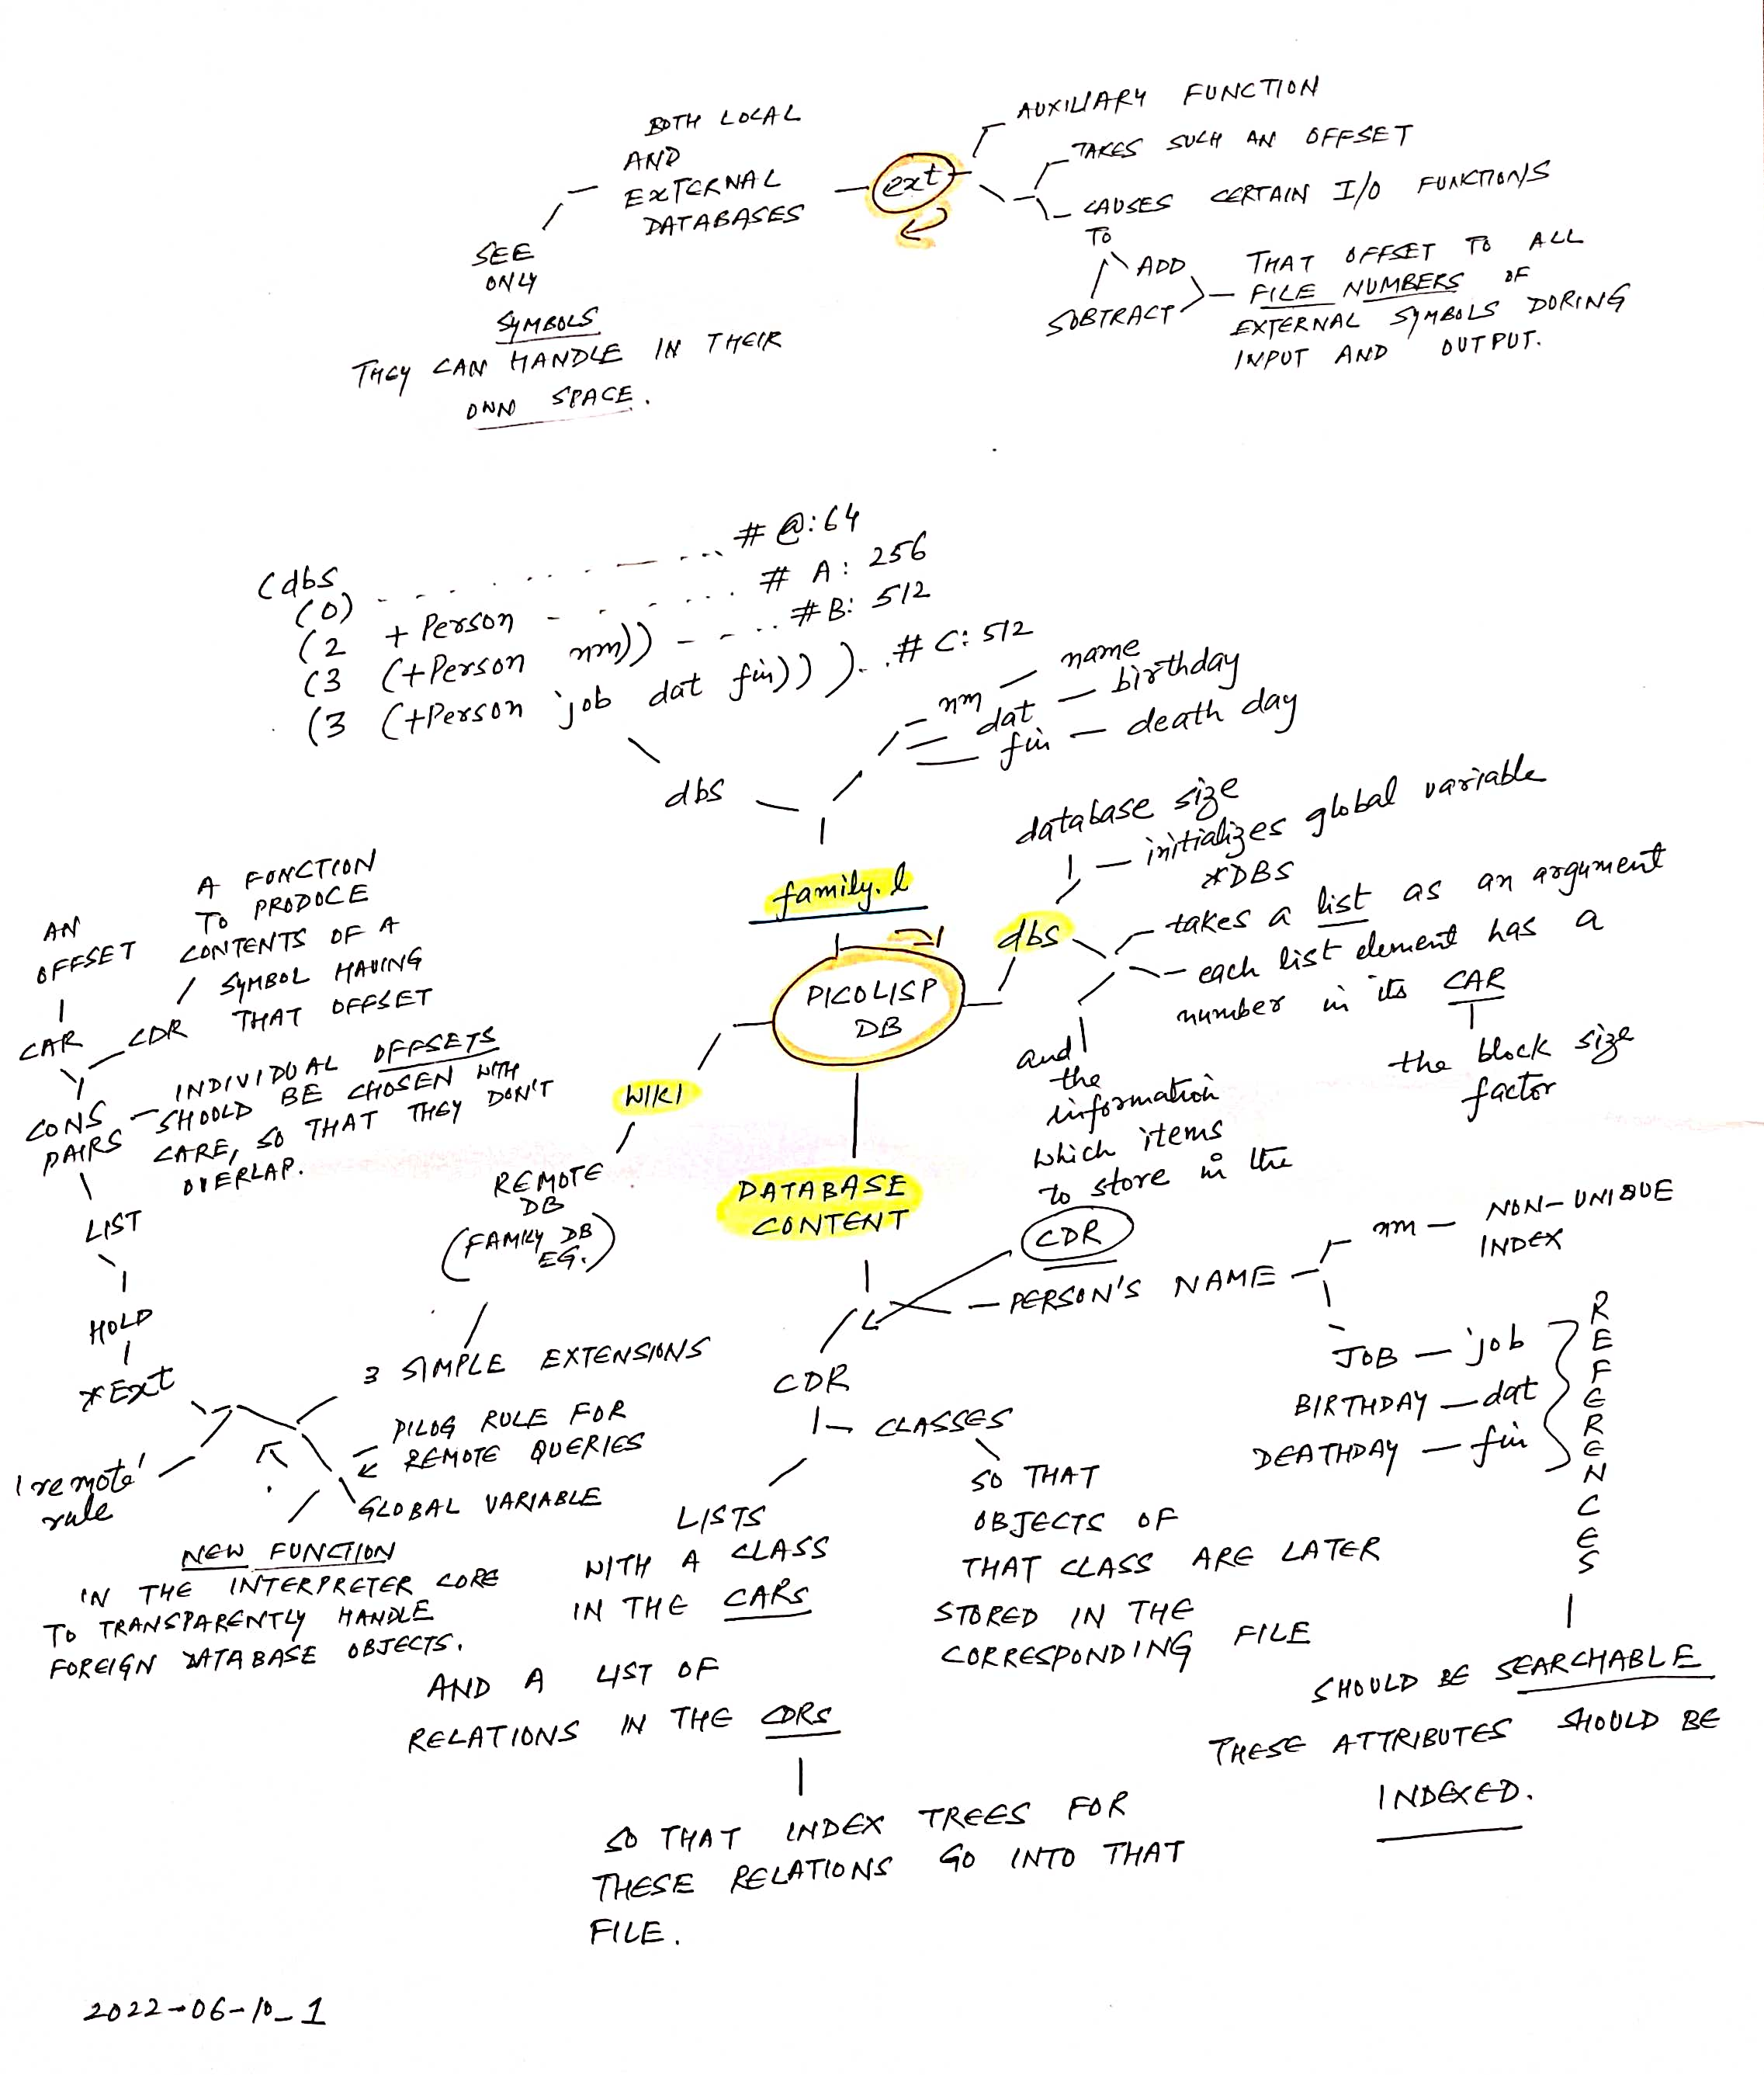 BOTH LOCAL
AND
EXTERNAL
DATABASES
SEE
ONLY
SYMBOLS
THEY CAN HANDLE IN THEIR
OWN SPACE.
ext
AUXILIARY FUNCTION
TAKES SUCH AN OFFSET
CAUSES CERTAIN I/O FUNCTIONS
TO
ADD
SUBTRACT
THAT OFFSET TO ALL
FILE NUMBERS OF
EXTERNAL SYMBOLS DURING
INPUT AND OUTPUT.
(dbs
(0) # @:64
(2 +Person # A: 256
(3 (+Person nm)) #B: 512
(3 (+Person job dat fin))) # C: 512
dbs
nm — name
dat — birthday
fin — death day
family.l
PICOLISP
DB
dbs
database size
initializes global variable
*DBS
takes a list as an argument
each list element has a
number in its CAR
the block size
factor
and
the
information
which items
to store in the
CDR
WIKI
REMOTE
DB
(FAMILY DB
EG.)
3 SIMPLE EXTENSIONS
PILOG RULE FOR
REMOTE QUERIES
GLOBAL VARIABLE
NEW FUNCTION
IN THE INTERPRETER CORE
TO TRANSPARENTLY HANDLE
FOREIGN DATABASE OBJECTS.
'remote'
rule
*Ext
HOLD
LIST
CONS
PAIRS
CAR
AN
OFFSET
CDR
A FUNCTION
TO PRODUCE
CONTENTS OF A
SYMBOL HAVING
THAT OFFSET
INDIVIDUAL OFFSETS
SHOULD BE CHOSEN WITH
CARE, SO THAT THEY DON'T
OVERLAP.
DATABASE
CONTENT
CDR
CLASSES
SO THAT
OBJECTS OF
THAT CLASS ARE LATER
STORED IN THE
CORRESPONDING FILE
LISTS
WITH A CLASS
IN THE CARs
AND A LIST OF
RELATIONS IN THE CDRs
SO THAT INDEX TREES FOR
THESE RELATIONS GO INTO THAT
FILE.
PERSON'S NAME
nm — NON-UNIQUE
INDEX
JOB — job
BIRTHDAY — dat
DEATHDAY — fin
REFERENCES
SHOULD BE SEARCHABLE
THESE ATTRIBUTES SHOULD BE
INDEXED.
2022-06-10_1